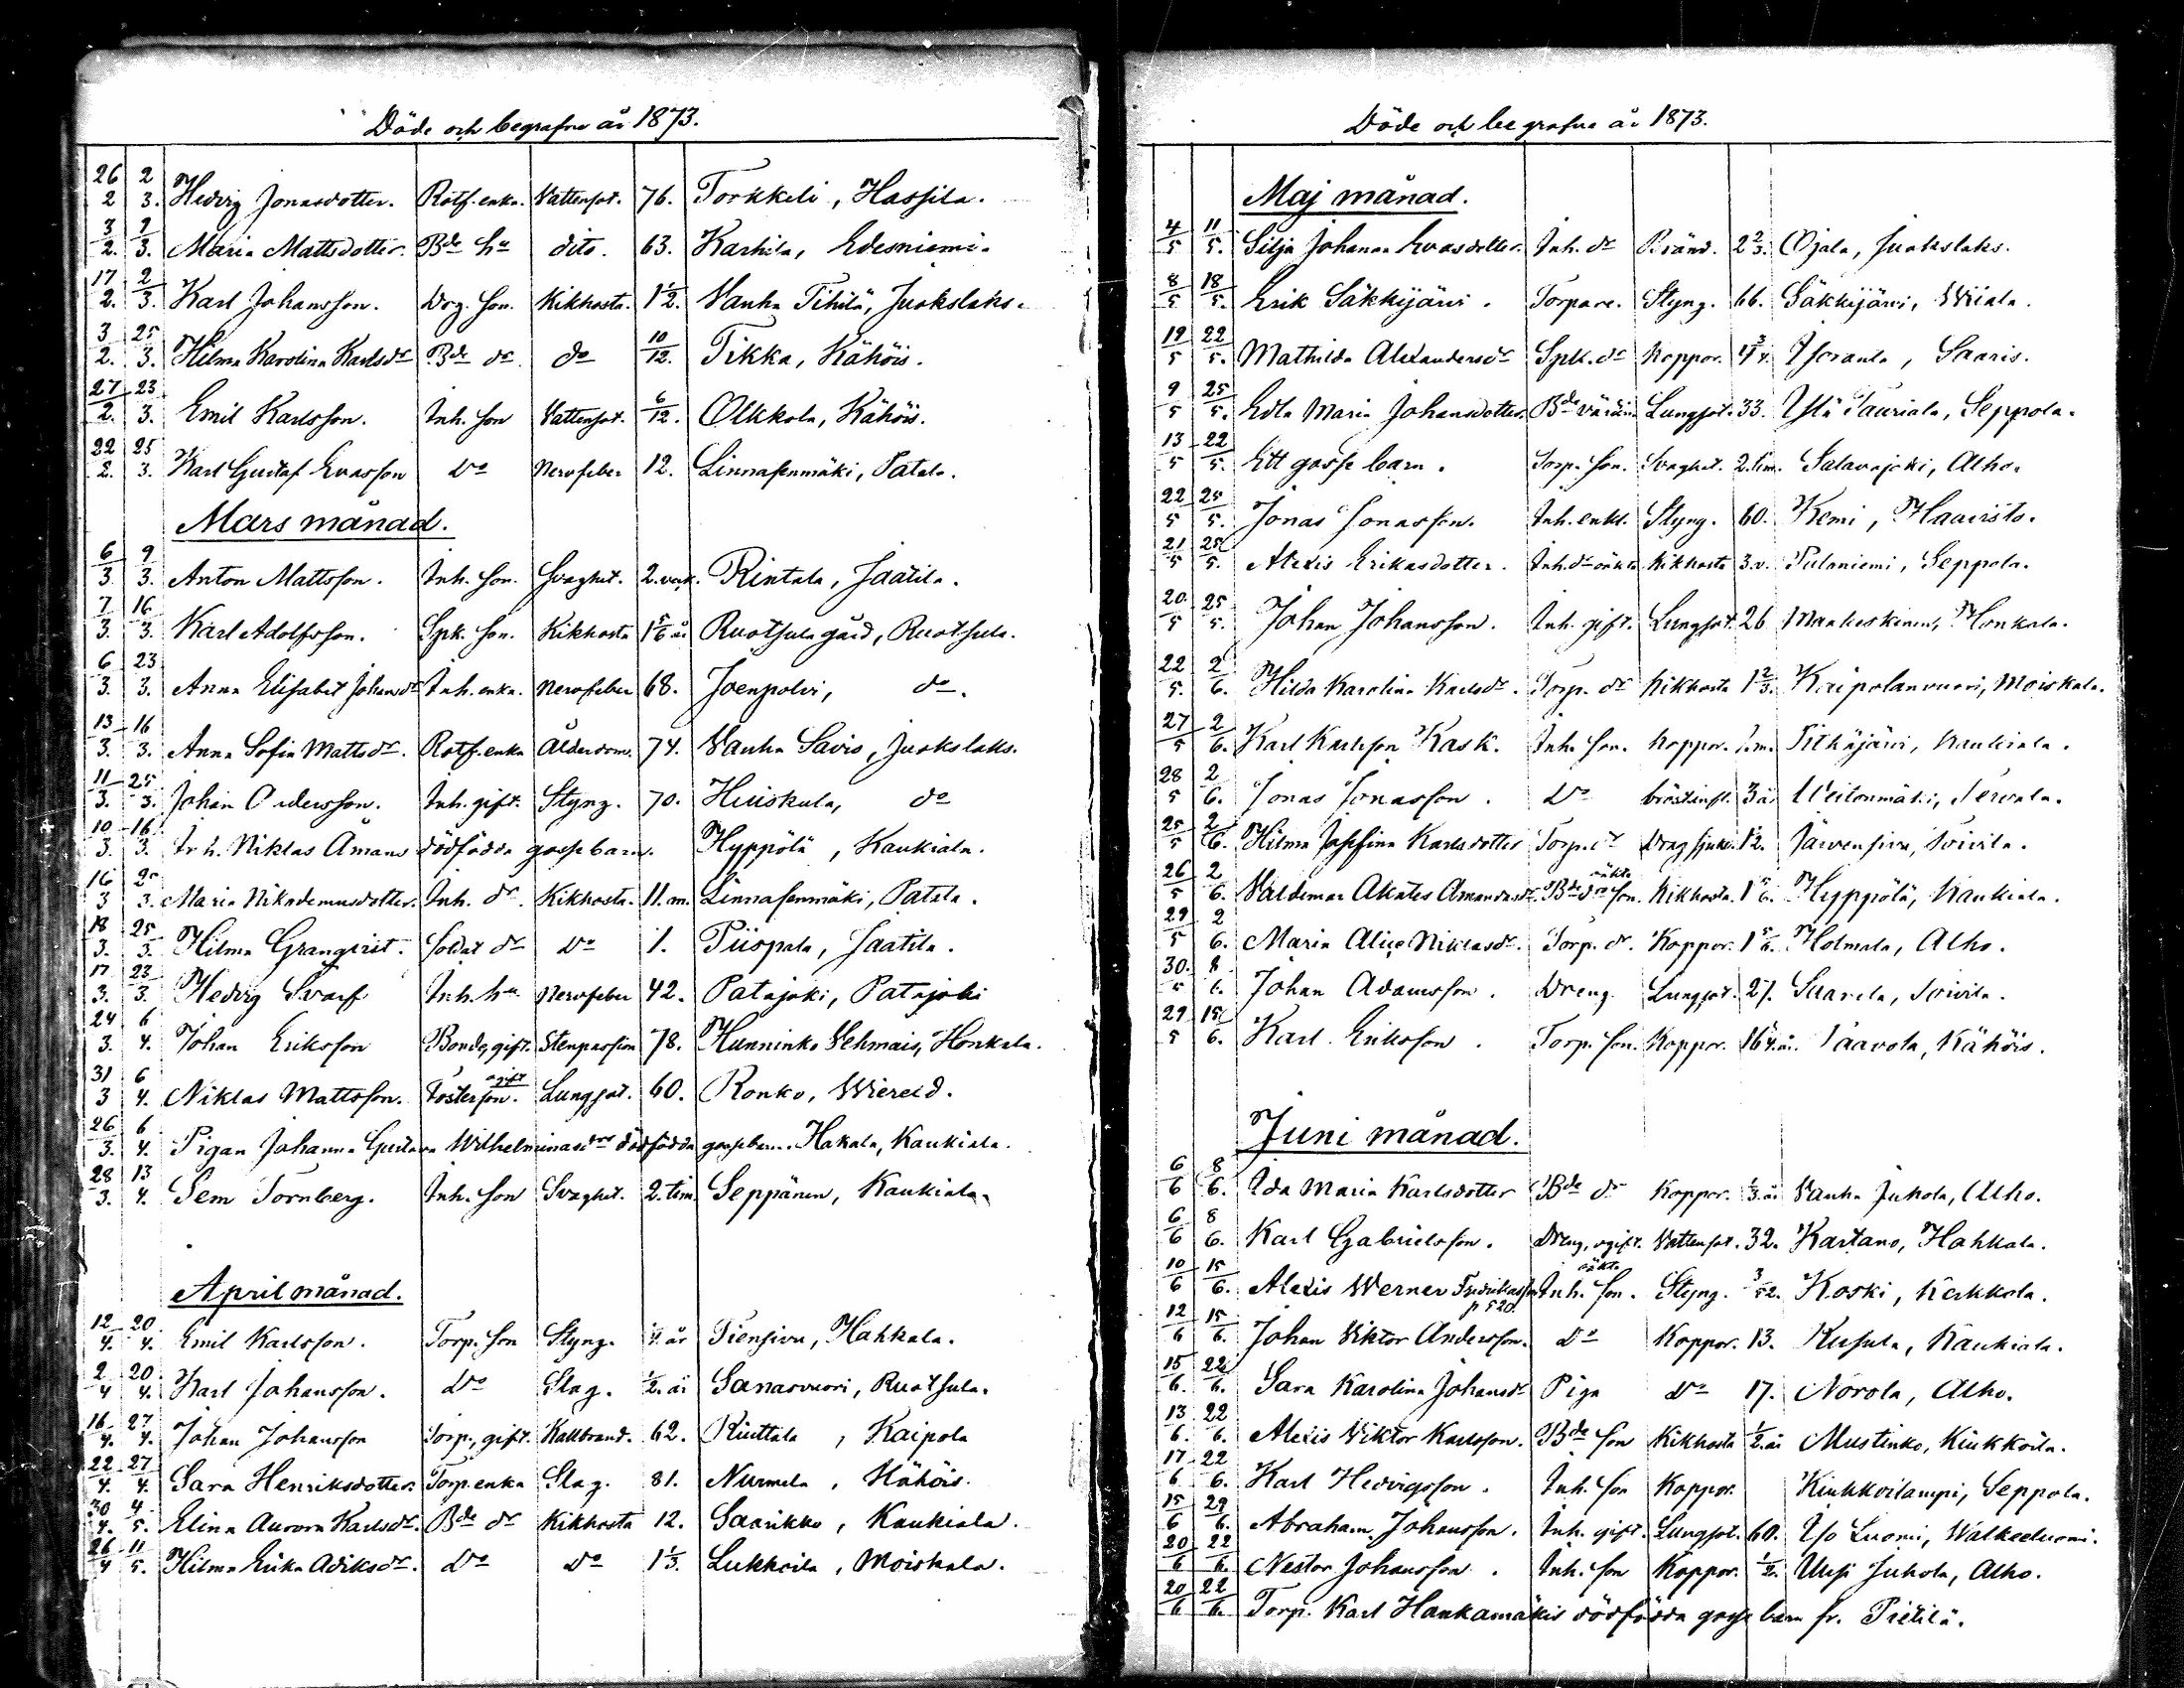 Döde och begrafne år 1873.
26/2 2/3. Hedvig Jonasdotter. Rotf. enka. Vattensot. 76. Torkkeli, Hassila.
3/2. 2/3. Maria Mattsdotter. Bde ha dito. 63. Karhila, Edesniemi.
17/2. 2/3. Karl Johansson. Drg. son. Kikhosta. 1 1/2. Vanha Tihilä, Juokslaks.
3/2. 25/3. Hilma Karolina Karlsdr Bde dr. do 10/12. Tikka, Kähöis.
27/2. 23/3. Emil Karlsson. Inh. son Vattensot. 6/12. Olkkola, Kähöis.
22/2. 25/3. Karl Gustaf Evasson do Nervfeber 12. Linnasenmäki, Patala.
Mars månad.
6/3. 9/3. Anton Mattsson. Inh. son. Svaghet. 2. veck. Rintala, Jaatila.
7/3. 16/3. Karl Adolfsson. Spk. son. Kikhosta 1 5/6 år Ruotsula gård, Ruotsula.
6/3. 23/3. Anna Elisabet Johansdr Inh. enka. Nervfeber 68. Joenpolvi, do.
13/3. 16/3. Anna Sofia Mattsdr. Rotf. enka Ålderdom. 74. Vanha Savio, Juokslaks.
11/3. 25/3. Johan Andersson. Inh. gift. Styng. 70. Huiskula, do
10/3. 16/3. Inh. Niklas Åmans dödfödda gosse barn. Hyppölä, Kaukiala.
16/3 25/3. Maria Nikodemusdotter. Inh. dr. Kikhosta. 11. m. Linnasenmäki, Patala.
18/3. 25/3. Hilma Granqvist. Soldat dr do 1. Piispala, Jaatila.
17/3. 23/3. Hedvig Svarf Inh. ha Nervfeber 42. Patajoki, Patajoki
24/3. 6/4. Johan Eriksson Bonde, gift. Stenpassion 78. Hunninko Lehmais, Honkala.
31/3 6/4. Niklas Mattsson. Fosterson. ogift Lungsot. 60. Ronko, Wiereld.
26/3. 6/4. Pigan Johanna Gustava Wilhelminasdrs dödfödda gossebarn. Hakala, Kaukiala.
28/3. 13/4. Sem Tornberg. Inh. son Svaghet. 2. tim. Seppänen, Kaukiala.
April månad.
12/4. 20/4. Emil Karlsson. Torp. son Styng. 1/4. år Tiensivu, Hahkala.
2/4 20/4. Karl Johansson. do Slag. 1/2. år Sanasvuori, Ruotsula.
16/4. 27/4. Johan Johansson Torp., gift. Kallbrand. 62. Riuttala, Kaipola
22/4. 27/4. Sara Henriksdotter. Torp. enka Slag. 81. Nurmela, Kähöis.
30/4. 4/5. Elina Aurora Karlsdr. Bde dr Kikhosta 12. Saarikko, Kaukiala.
26/4 11/5. Hilma Erika Adiksdr. do do 1 1/3. Lukkoila, Moiskala.
Döde och begrafne år 1873.
Maj månad.
4/5 11/5. Silja Johanna Evasdotter. Inh. dr Bränd. 2 2/3. Ojala, Juokslaks.
8/5 18/5. Erik Säkkijärvi. Torpare. Styng. 66. Säkkijärvi, Wiiala.
19/5 22/5. Mathilda Alexandersdr Spk. dr Koppor. 4 3/4. Isoranta, Saaris.
9/5 25/5. Edla Maria Johansdotter. Bde värdin Lungsot. 33. Ylä Tauriala, Seppola.
13/5 22/5. Ett gosse barn. Torp. son. Svaghet. 2. tim. Salavajoki, Alho.
22/5 25/5. Jonas Jonasson. Inh. enkl. Styng. 60. Kemi, Haavisto.
21/5 25/5. Alexis Erikasdotter. Inh. dr oäkta Kikhosta 3. v. Pulaniemi, Seppola.
20./5 25/5. Johan Johansson. Inh. gift. Lungsot. 26 Maakeskinen, Honkala.
22/5. 2/6. Hilda Karolina Karlsdr. Torp. dr Kikhosta 1 2/3. Kaipolanvuori, Moiskala.
27/5 2/6. Karl Karlsson Kask. Inh. son. Koppor. m. Pitkäjärvi, Kaukiala.
28/5 2/6. Jonas Jonasson. do bröstinfl. 3 år Weitonmäki, Tervala.
25/5 2/6. Hilma Josefina Karlsdotter Torp. dr Dragsjuk. 1/2. Järvensivu, Toivila.
26/5 2/6. Valdemar Akates Amandasdr. Bde drs oäkta son. Kikhosta. 1 5/6. Hyppölä, Kaukiala.
29/5 2/6. Maria Alice Niklasdr. Torp. dr. Koppor. 1 5/6. Holmala, Alho.
30./5 8/6. Johan Adamsson. Dreng. Lungsot. 27. Saarela, Toivila.
29/5 15/6. Karl Eriksson. Torp. son. Koppor. 16 1/4. år. Paavola, Kähöis.
Juni månad.
6/6 8/6. Ida Maria Karlsdotter Bde dr Koppor. 1/3. år Vanha Juhola, Alho.
6/6 8/6. Karl Gabrielsson. Dreng, ogift. Vattensot. 32. Kartano, Hahkala.
10/6 15/6. Alexis Werner Fredrikasson p 520. Inh. oäkta son. Styng. 3/52. Koski, Kerkkola.
12/6 15/6. Johan Viktor Andersson. do Koppor. 13. Kusula, Kaukiala.
15/6. 22/6. Sara Karolina Johansdr Piga do 17. Norola, Alho.
13/6. 22/6. Alexis Viktor Karlsson. Bde son Kikhosta 1/2. år Mustinko, Kiukkoila.
17/6 22/6. Karl Hedvigsson. Inh. son Koppor. Kiukkoilampi, Seppola.
15/6 29/6. Abraham Johansson. Inh. gift. Lungsot. 60. Iso Luomi, Walkeeluomi.
20/6 22/6. Nestor Johansson. Inh. son Koppor. 1/2. Uusi Juhola, Alho.
20/6 22/6. Torp. Karl Hankamäkis dödfödda gosse barn fr. Pietilä.